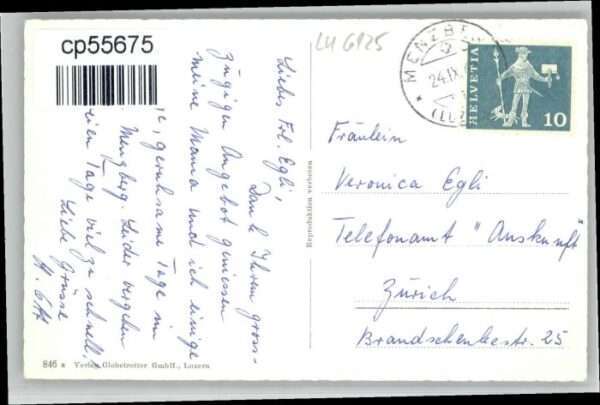 cp55675
LU 6125
Liebes Frl. Egli,
Dank Ihrem gross-
zügigen Angebot geniessen
meine Mama und ich einige
geruhsame Tage im
Menzberg. Leider vergehen
Tage viel zu schnell.
Liebe Grüsse
H.
MENZBE
24.IX
(LUZ
HELVETIA
10
Fräulein
Veronica Egli
Telefonamt "Auskunft"
Zürich
Brandschenkestr. 25
Reproduktion verboten
846 * Verlag Globetrotter GmbH., Luzern